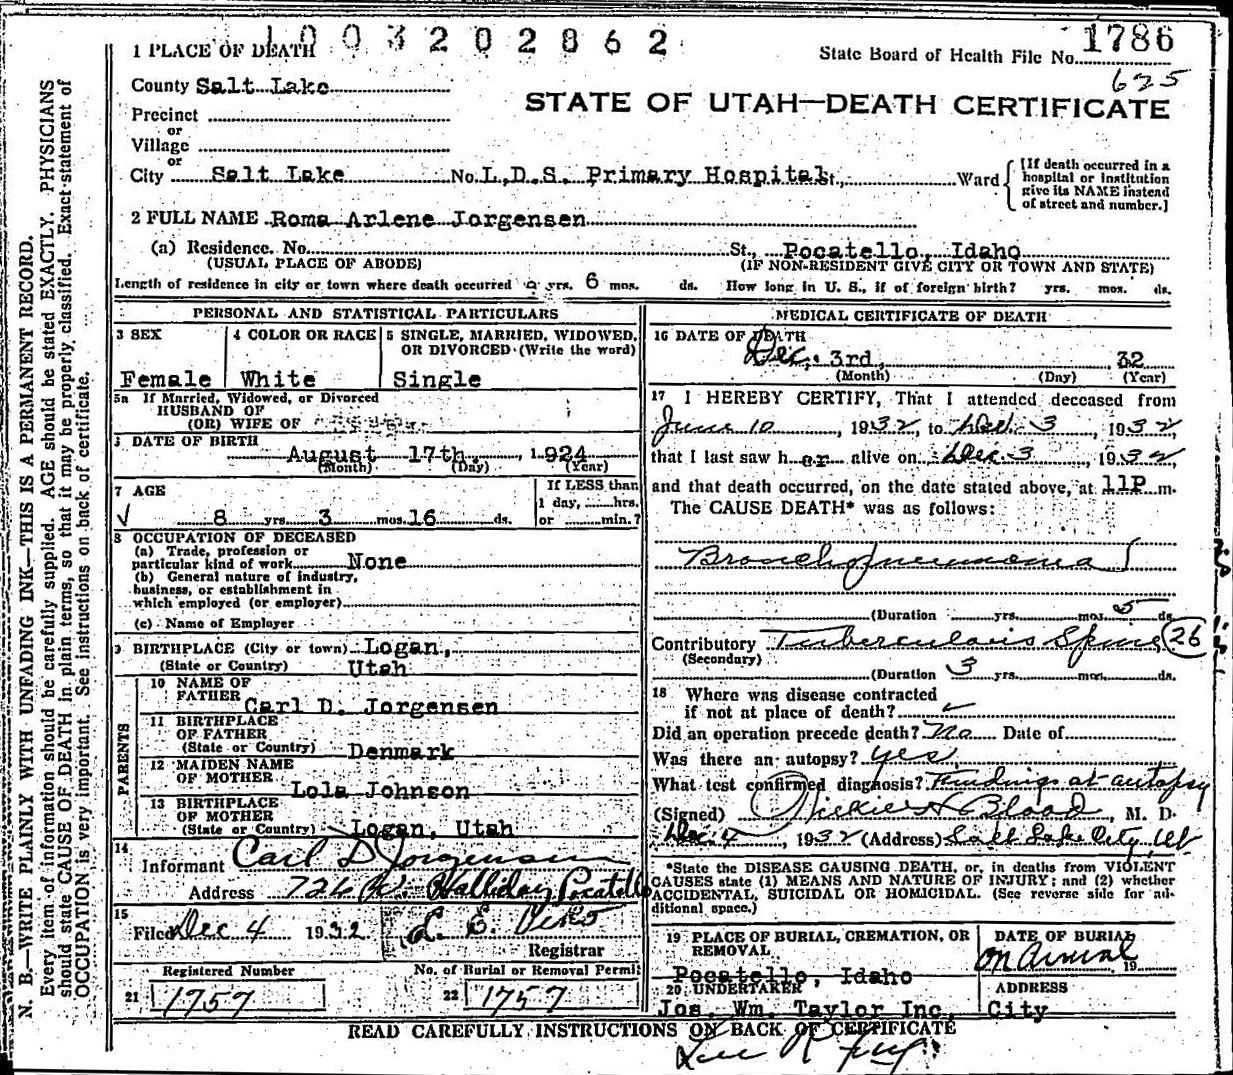 1003202862
1 PLACE OF DEATH
State Board of Health File No. 1786
625
County Salt Lake
STATE OF UTAH—DEATH CERTIFICATE
Precinct
or
Village
or
City Salt Lake No. L.D.S. Primary Hospital St., Ward
[If death occurred in a hospital or institution give its NAME instead of street and number.]
2 FULL NAME Roma Arlene Jorgensen
(a) Residence. No. St., Pocatello, Idaho
(USUAL PLACE OF ABODE) (IF NON-RESIDENT GIVE CITY OR TOWN AND STATE)
Length of residence in city or town where death occurred yrs. 6 mos. ds. How long in U. S., if of foreign birth? yrs. mos. ds.
PERSONAL AND STATISTICAL PARTICULARS
3 SEX
Female
4 COLOR OR RACE
White
5 SINGLE, MARRIED, WIDOWED,
OR DIVORCED (Write the word)
Single
5a If Married, Widowed, or Divorced
HUSBAND OF
(OR) WIFE OF
DATE OF BIRTH
August 17th, 1924
(Month) (Day) (Year)
7 AGE
8 yrs. 3 mos. 16 ds.
If LESS than
1 day, hrs.
or min.?
8 OCCUPATION OF DECEASED
(a) Trade, profession or
particular kind of work None
(b) General nature of industry,
business, or establishment in
which employed (or employer)
(c) Name of Employer
9 BIRTHPLACE (City or town) Logan,
(State or Country) Utah
PARENTS
10 NAME OF
FATHER Carl D. Jorgensen
11 BIRTHPLACE
OF FATHER
(State or Country) Denmark
12 MAIDEN NAME
OF MOTHER Lola Johnson
13 BIRTHPLACE
OF MOTHER
(State or Country) Logan, Utah
14
Informant Carl D Jorgensen
Address 726 W. Halliday Pocatello
15
Filed Dec 4 1932
Registrar
Registered Number
21 1757
No. of Burial or Removal Permit
22 1757
MEDICAL CERTIFICATE OF DEATH
16 DATE OF DEATH
Dec. 3rd, 32
(Month) (Day) (Year)
17 I HEREBY CERTIFY, That I attended deceased from
June 10, 1932, to Dec. 3, 1932,
that I last saw her alive on Dec. 3, 1932,
and that death occurred, on the date stated above, at 11P m.
The CAUSE DEATH* was as follows:
Bronchopneumonia
(Duration yrs. mos. 5 ds.
Contributory Tuberculosis Spine 26
(Secondary)
(Duration 3 yrs. mos. ds.
18 Where was disease contracted
if not at place of death?
Did an operation precede death? No Date of
Was there an autopsy? yes.
What test confirmed diagnosis? Findings at autopsy
(Signed) Blood, M. D.
Dec. 4, 1932 (Address) Salt Lake City, Ut
*State the DISEASE CAUSING DEATH, or, in deaths from VIOLENT
CAUSES state (1) MEANS AND NATURE OF INJURY; and (2) whether
ACCIDENTAL, SUICIDAL OR HOMICIDAL. (See reverse side for ad-
ditional space.)
19 PLACE OF BURIAL, CREMATION, OR
REMOVAL
Pocatello, Idaho
DATE OF BURIAL
On Arrival 19
20 UNDERTAKER
Jos. Wm. Taylor Inc.
ADDRESS
City
READ CAREFULLY INSTRUCTIONS ON BACK OF CERTIFICATE
N. B.—WRITE PLAINLY WITH UNFADING INK—THIS IS A PERMANENT RECORD.
Every item of information should be carefully supplied. AGE should be stated EXACTLY. PHYSICIANS
should state CAUSE OF DEATH in plain terms, so that it may be properly classified. Exact statement of
OCCUPATION is very important. See instructions on back of certificate.